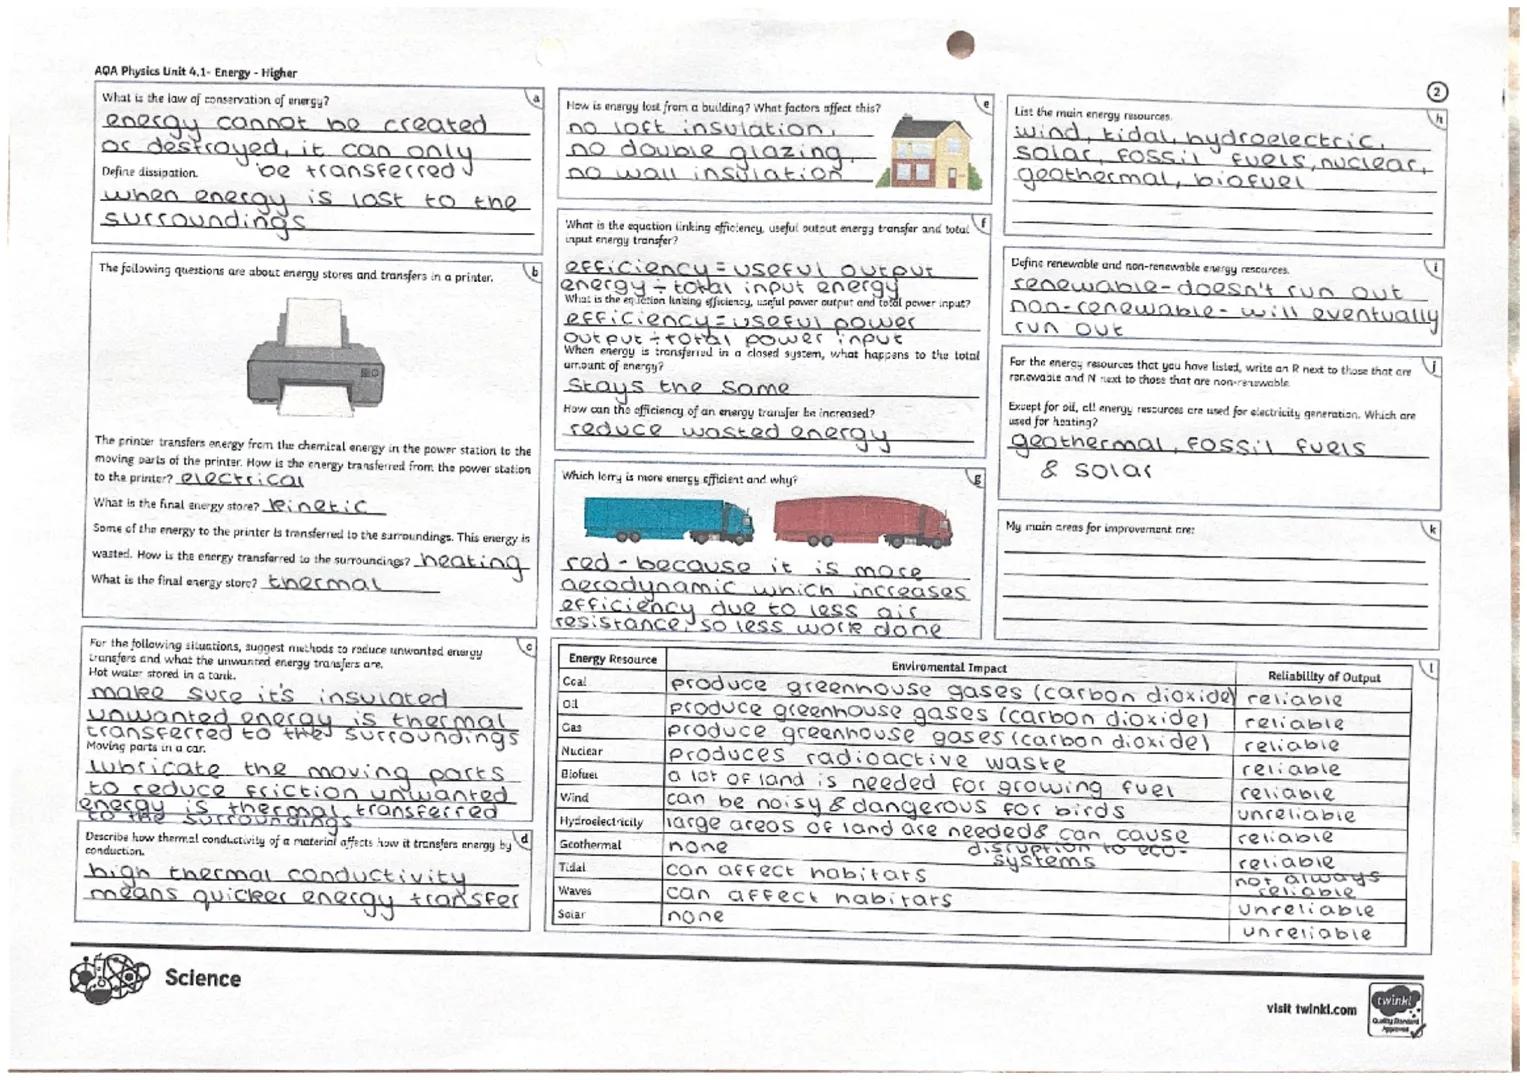 AQA Physics Unit 4.1- Energy - Higher
2
a
What is the law of conservation of energy?
energy cannot be created
or destroyed, it can only
be transferred
Define dissipation.
when energy is lost to the
surroundings
b
The following questions are about energy stores and transfers in a printer.
The printer transfers energy from the chemical energy in the power station to the
moving parts of the printer. How is the energy transferred from the power station
to the printer? electrical
What is the final energy store? kinetic
Some of the energy to the printer is transferred to the surroundings. This energy is
wasted. How is the energy transferred to the surroundings? heating
What is the final energy store? thermal
c
For the following situations, suggest methods to reduce unwanted energy
transfers and what the unwanted energy transfers are.
Hot water stored in a tank.
make sure it's insulated
unwanted energy is thermal
transferred to the surroundings
Moving parts in a car.
lubricate the moving parts
to reduce friction unwanted
energy is thermal transferred
to the surroundings
d
Describe how thermal conductivity of a material affects how it transfers energy by
conduction.
high thermal conductivity
means quicker energy transfer
e
How is energy lost from a building? What factors affect this?
no loft insulation,
no double glazing,
no wall insulation
f
What is the equation linking efficiency, useful output energy transfer and total
input energy transfer?
efficiency = useful output
energy ÷ total input energy
What is the equation linking efficiency, useful power output and total power input?
efficiency = useful power
output ÷ total power input
When energy is transferred in a closed system, what happens to the total
amount of energy?
stays the same
How can the efficiency of an energy transfer be increased?
reduce wasted energy
g
Which lorry is more energy efficient and why?
red - because it is more
aerodynamic which increases
efficiency due to less air
resistance, so less work done
h
List the main energy resources.
wind, tidal, hydroelectric,
solar, fossil fuels, nuclear,
geothermal, biofuel
i
Define renewable and non-renewable energy resources.
renewable - doesn't run out
non-renewable - will eventually
run out
j
For the energy resources that you have listed, write an R next to those that are
renewable and N next to those that are non-renewable.
Except for oil, all energy resources are used for electricity generation. Which are
used for heating?
geothermal, fossil fuels
& solar
k
My main areas for improvement are:
l
Energy Resource Enviromental Impact Reliability of Output
Coal produce greenhouse gases (carbon dioxide) reliable
Oil produce greenhouse gases (carbon dioxide) reliable
Gas produce greenhouse gases (carbon dioxide) reliable
Nuclear produces radioactive waste reliable
Biofuel a lot of land is needed for growing fuel reliable
Wind can be noisy & dangerous for birds unreliable
Hydroelectricity large areas of land are needed & can cause
disruption to eco-
systems reliable
Geothermal none reliable
Tidal can affect habitats not always
reliable
Waves can affect habitats unreliable
Solar none unreliable
Science
visit twinkl.com
twinkl
Quality Standard
Approved